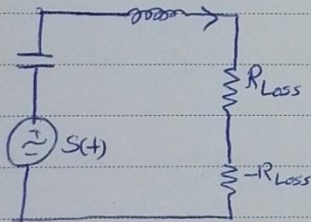 R Loss
S(t)
-R Loss